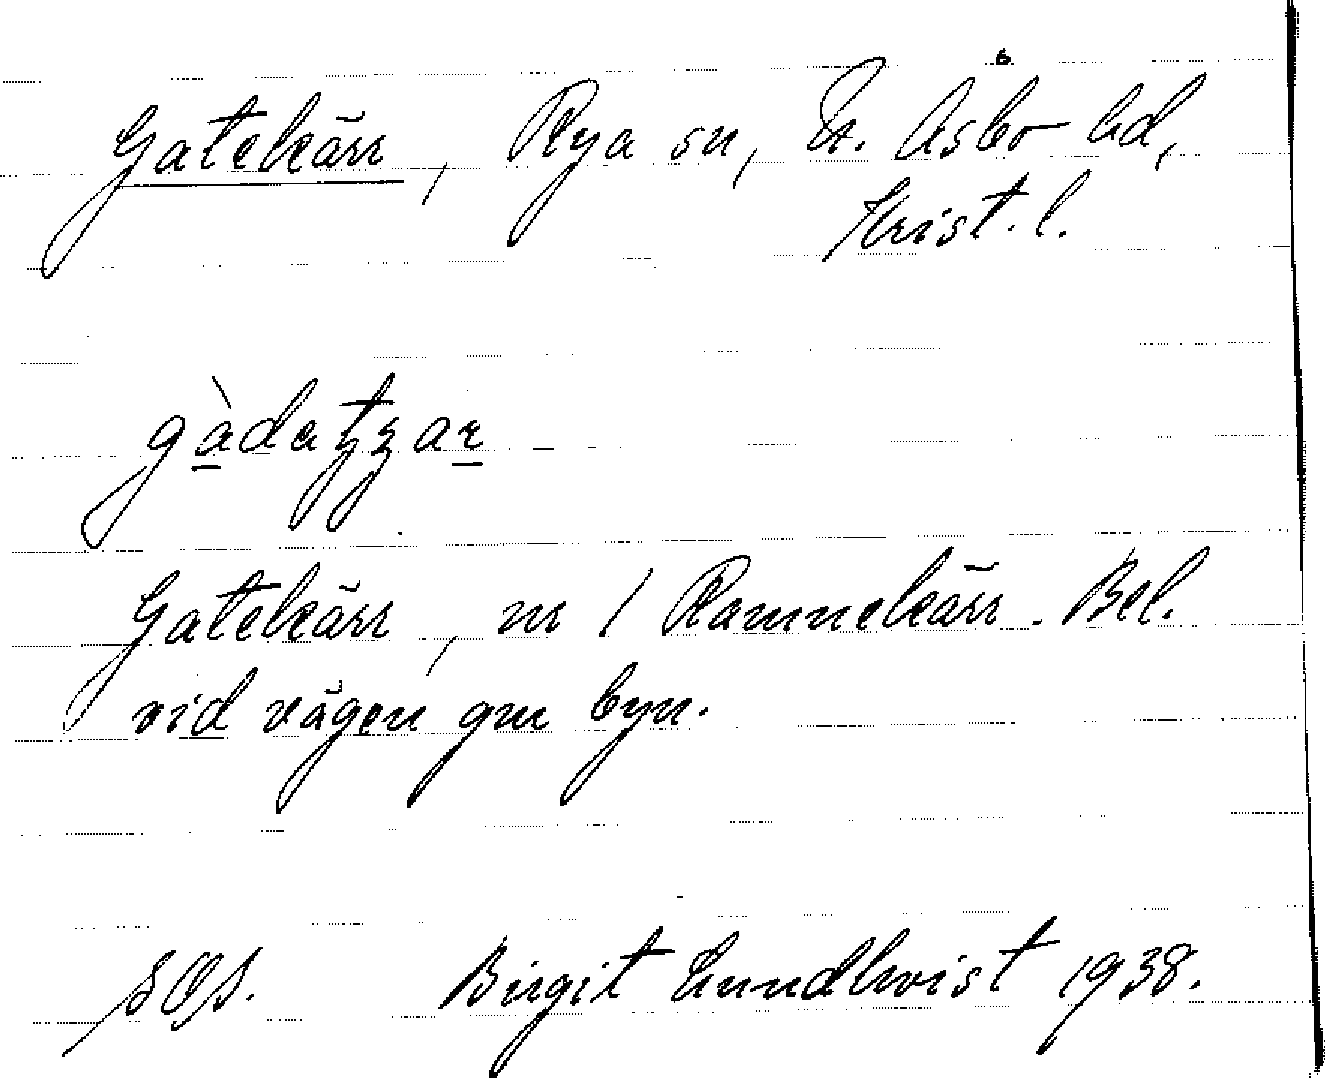 Gatekärr, Rya sn, N. Åsbo hd,
Krist. l.
Gatekärr, nr 1 Ramnekärr. Bel.
vid vägen gm byn.
SOS. Birgit Lundkvist 1938.